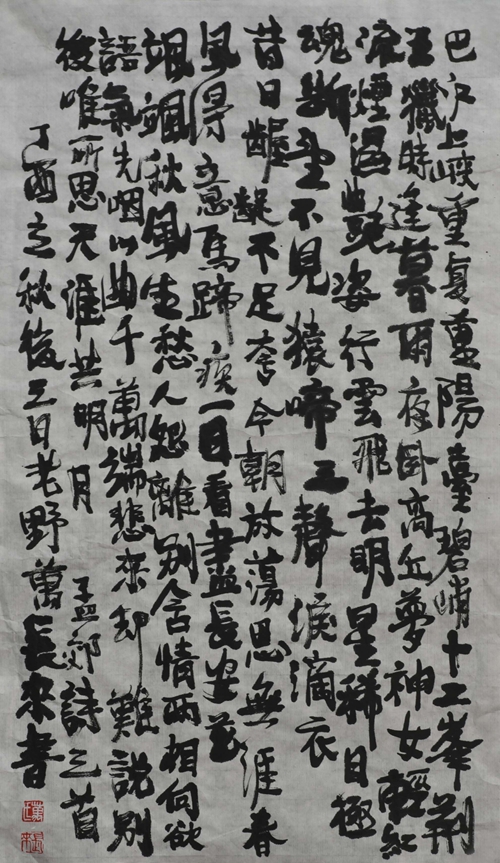 巴江上峽重复重陽臺碧峭十二峯荊
王獵時逢暮雨夜卧高丘夢神女輕紅
流煙濕豔姿行雲飛去明星稀目極
魂斷望不見猿啼三聲淚滴衣
昔日齷齪不足夸今朝放蕩思無涯春
風得意馬蹄疾一日看盡長安花
颯颯秋風生愁人怨離別含情兩相向欲
語氣先咽心曲千萬端悲來却難說別
後唯所思天涯共明月 孟郊詩三首
丁酉之秋後三日老野萬長來書